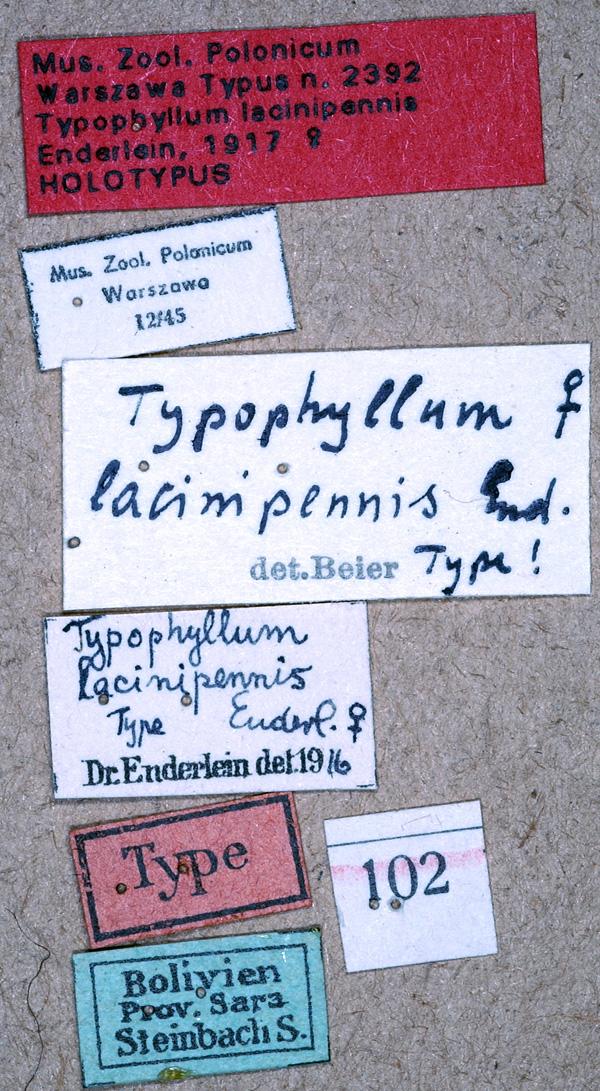 Mus. Zool. Polonicum
Warszawa Typus n. 2392
Typophyllum lacinipennis
Enderlein, 1917 ♀
HOLOTYPUS
Mus. Zool. Polonicum
Warszawa
12/45
Typophyllum ♀
lacinipennis End.
det. Beier Type!
Typophyllum
lacinipennis
Type Enderl. ♀
Dr. Enderlein det. 1916
Type
102
Bolivien
Prov. Sara
Steinbach S.